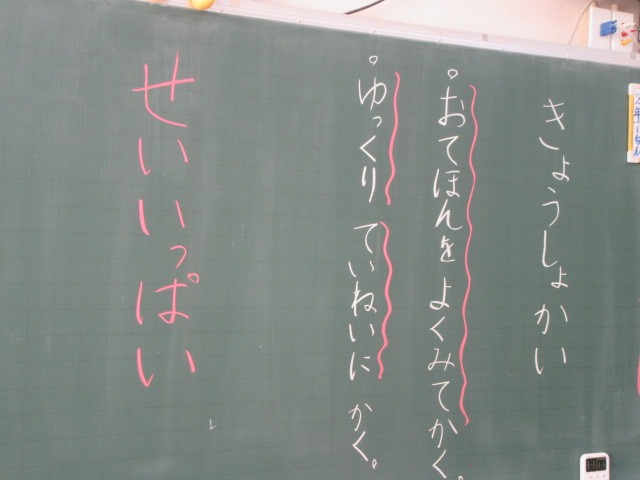 きょうしょかい
。おてほんを よくみてかく。
。ゆっくり ていねいに かく。
せいいっぱい